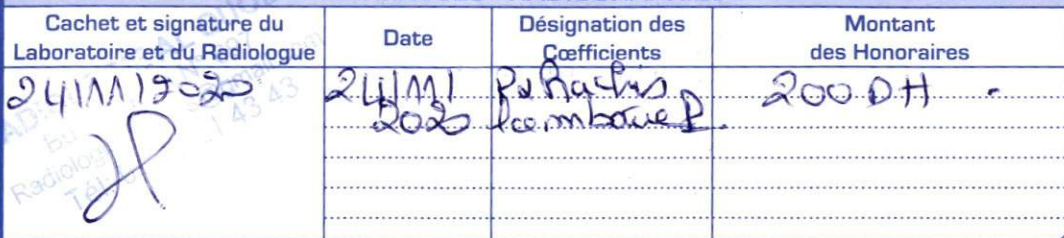 Cachet et signature du
Laboratoire et du Radiologue
Date
Désignation des
Cœfficients
Montant
des Honoraires
24/11/2020
24/11/
2020
Rx Rachis
lombaire P.
200 DH
Radiolog
Tél
43 43